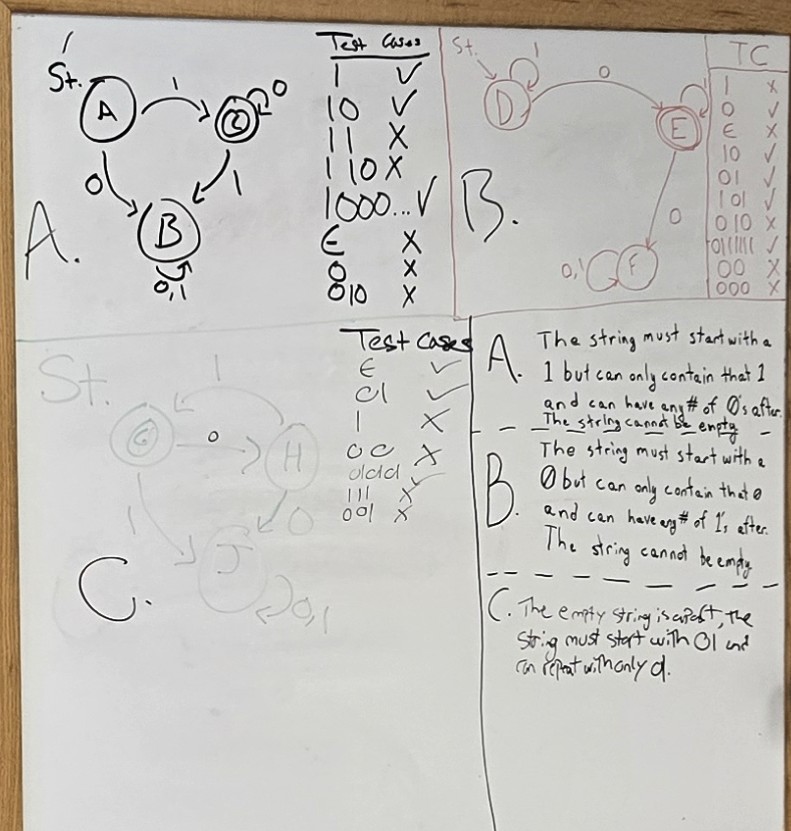 St.
A
1
C
0
0
1
B
0,1
A.
Test Cases
1 ✓
10 ✓
11 X
110 X
1000... ✓
ε X
0 X
010 X
St.
D
1
0
E
0
F
0,1
B.
TC
1 X
0 ✓
ε X
10 ✓
01 ✓
101 ✓
010 X
0111111 ✓
00 X
000 X
St.
G
1
0
H
1
0
J
0,1
C.
Test Cases
ε ✓
01 ✓
1 X
00 X
0101 ✓
111 X
001 X
A. The string must start with a
1 but can only contain that 1
and can have any # of 0's after.
The string cannot be empty
B. The string must start with a
0 but can only contain that 0
and can have any # of 1's after.
The string cannot be empty
C. The empty string is
the
string must start with 01 and
can repeat with only 01.